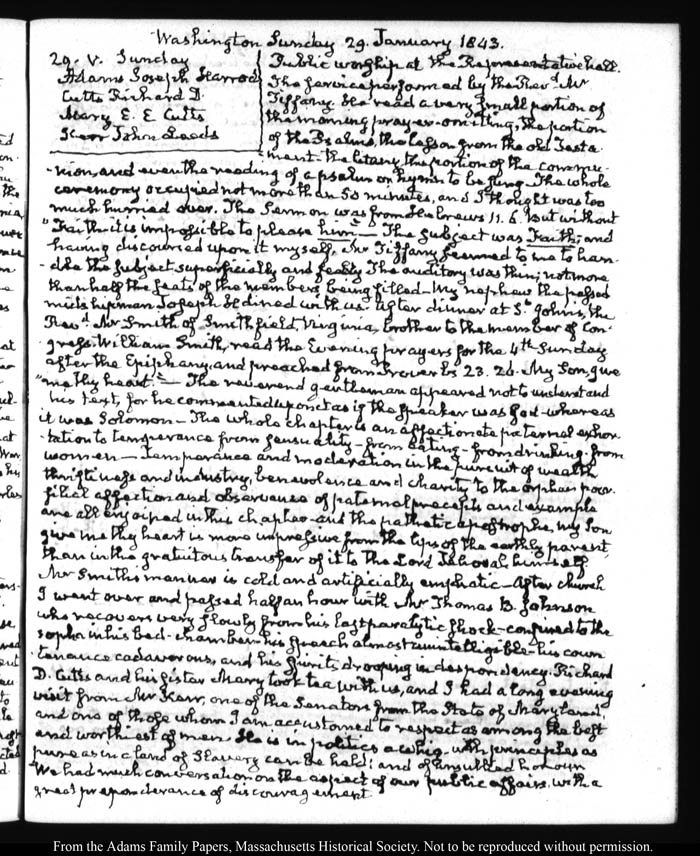 Washington Sunday 29. January 1843.
29. V. Sunday
Adams Joseph Harrod
Cutts Richard D.
Mary E. E. Cutts
Kerr John Leeds
Public worship at the Representative hall.
The service performed by the Revd. Mr
Tiffany. He read a very small portion of
the morning prayer—omitting, the portion
of the Psalms, the lesson from the old Testa
ment—the litany, the portion of the commu-
-nion, and even the reading of a psalm or hymn to be sung. The whole
ceremony occupied not more than 50 minutes, and I thought was too
much hurried over. The Sermon was from Hebrews 11. 6. But without
"Faith it is impossible to please him"— The subject was Faith; and
having discoursed upon it myself, Mr Tiffany seemed to me to han-
-dle the subject superficially and feebly. The auditory was thin; not more
than half the seats of the members being filled—My nephew the passed
midshipman Joseph H. dined with us. After dinner at St. John's, the
Revd. Mr Smith of Smithfield, Virginia, brother to the member of Con-
-gress William Smith, read the Evening prayers for the 4th Sunday
after the Epiphany, and preached from Proverbs 23. 26. My Son, give
"me thy heart."— The reverend gentleman appeared not to understand
his text, for he commented upon it as if the speaker was God—whereas
it was Solomon—The whole chapter is an affectionate paternal exhor
-tation to temperance from sensuality—from eating—from drinking—from
women—Temperance and moderation in the pursuit of wealth
thriftiness and industry, benevolence and charity to the orphan poor.
filial affection and observance of paternal precepts and example
are all enjoined in this chapter—and the pathetic apostrophe, my Son
give me thy heart is more impressive from the lips of the earthly parent,
than in the gratuitous transfer of it to the Lord Jehovah himself
Mr Smith's manner is cold and artificially emphatic—After church
I went over and passed half an hour with Mr Thomas B. Johnson
who recovers very slowly from his last paralytic shock—confined to the
sopha in his bed-chamber his speech almost unintelligible—his coun
-tenance cadaverous, and his spirits drooping in despondency. Richard
D. Cutts and his sister Mary took tea with us, and I had a long evening
visit from Mr Kerr, one of the Senators from the State of Maryland,
and one of those whom I am accustomed to respect as among the best
and worthiest of men. He is in politics a whig, with principles as
pure as in a land of Slavery can be held; and of unsullied honour
We had much conversation on the aspect of our public affairs, with a
great preponderance of discouragement
From the Adams Family Papers, Massachusetts Historical Society. Not to be reproduced without permission.